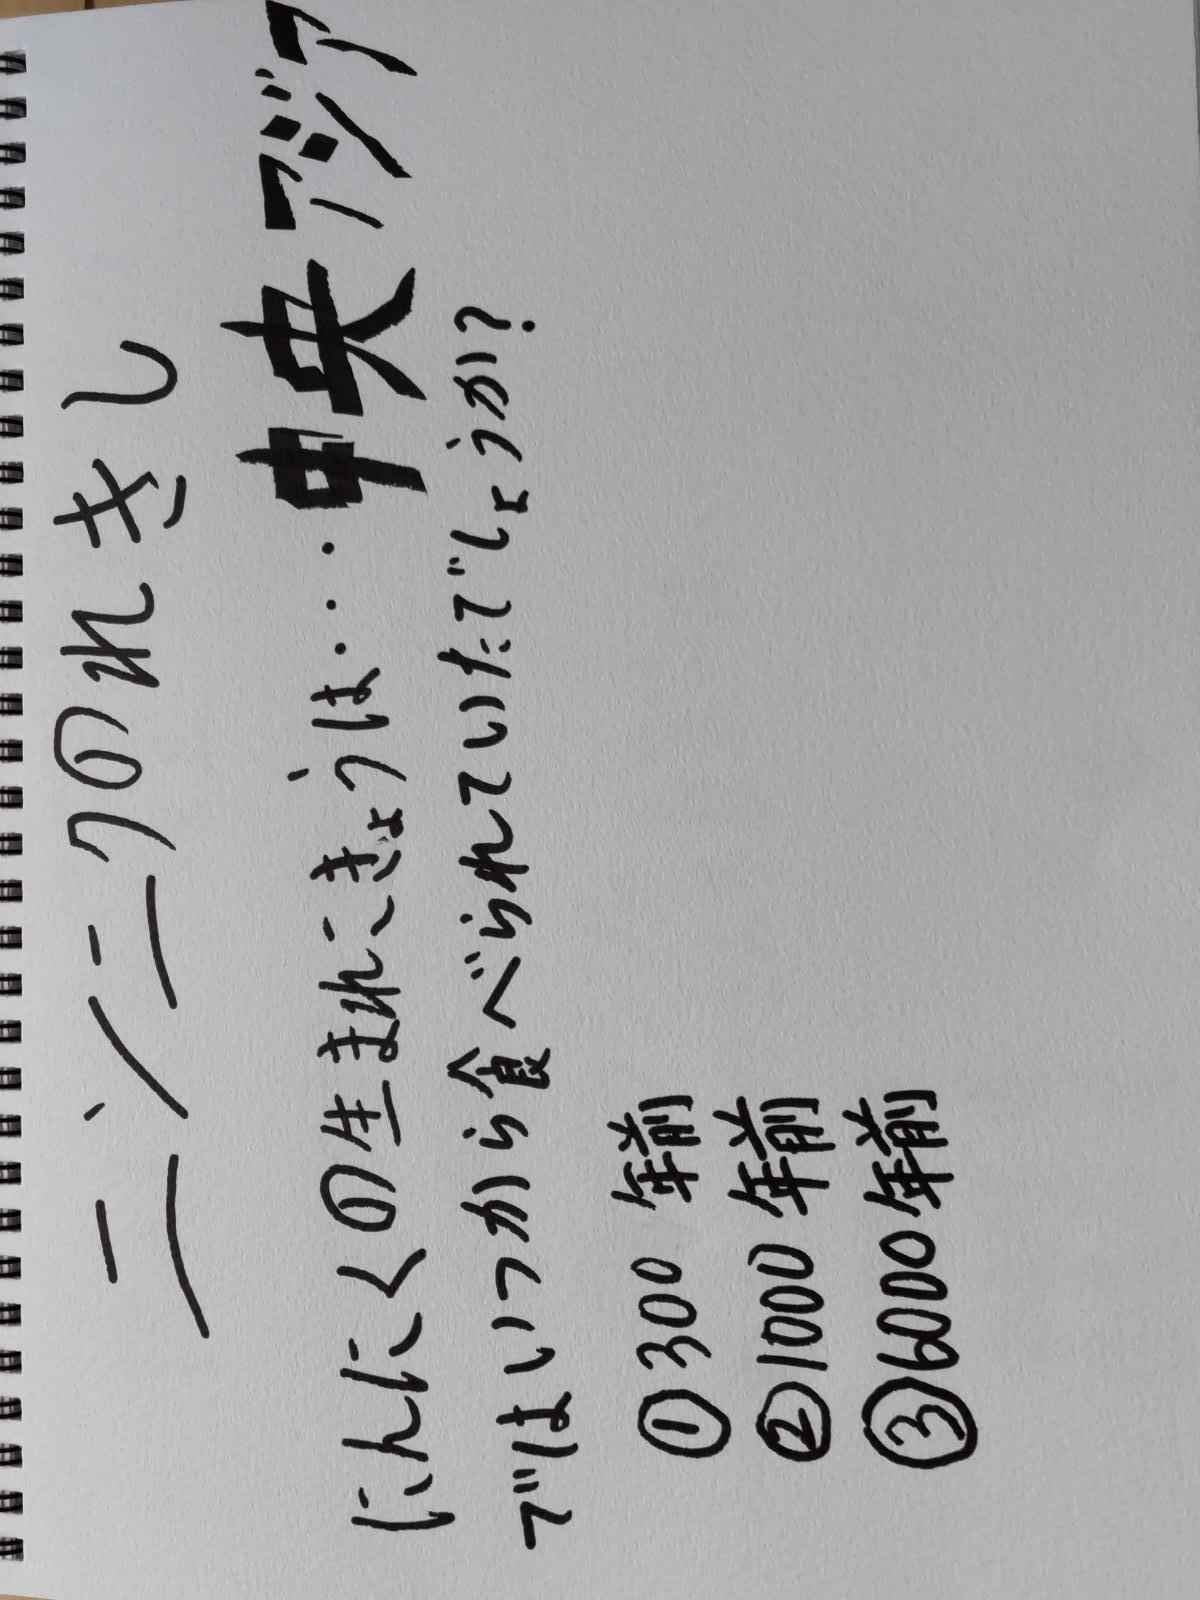 ニンニクのれきし
にんにくの生まれこきょうは・・・中央アジア
ではいつから食べられていたでしょうか?
①300年前
②1000年前
③6000年前